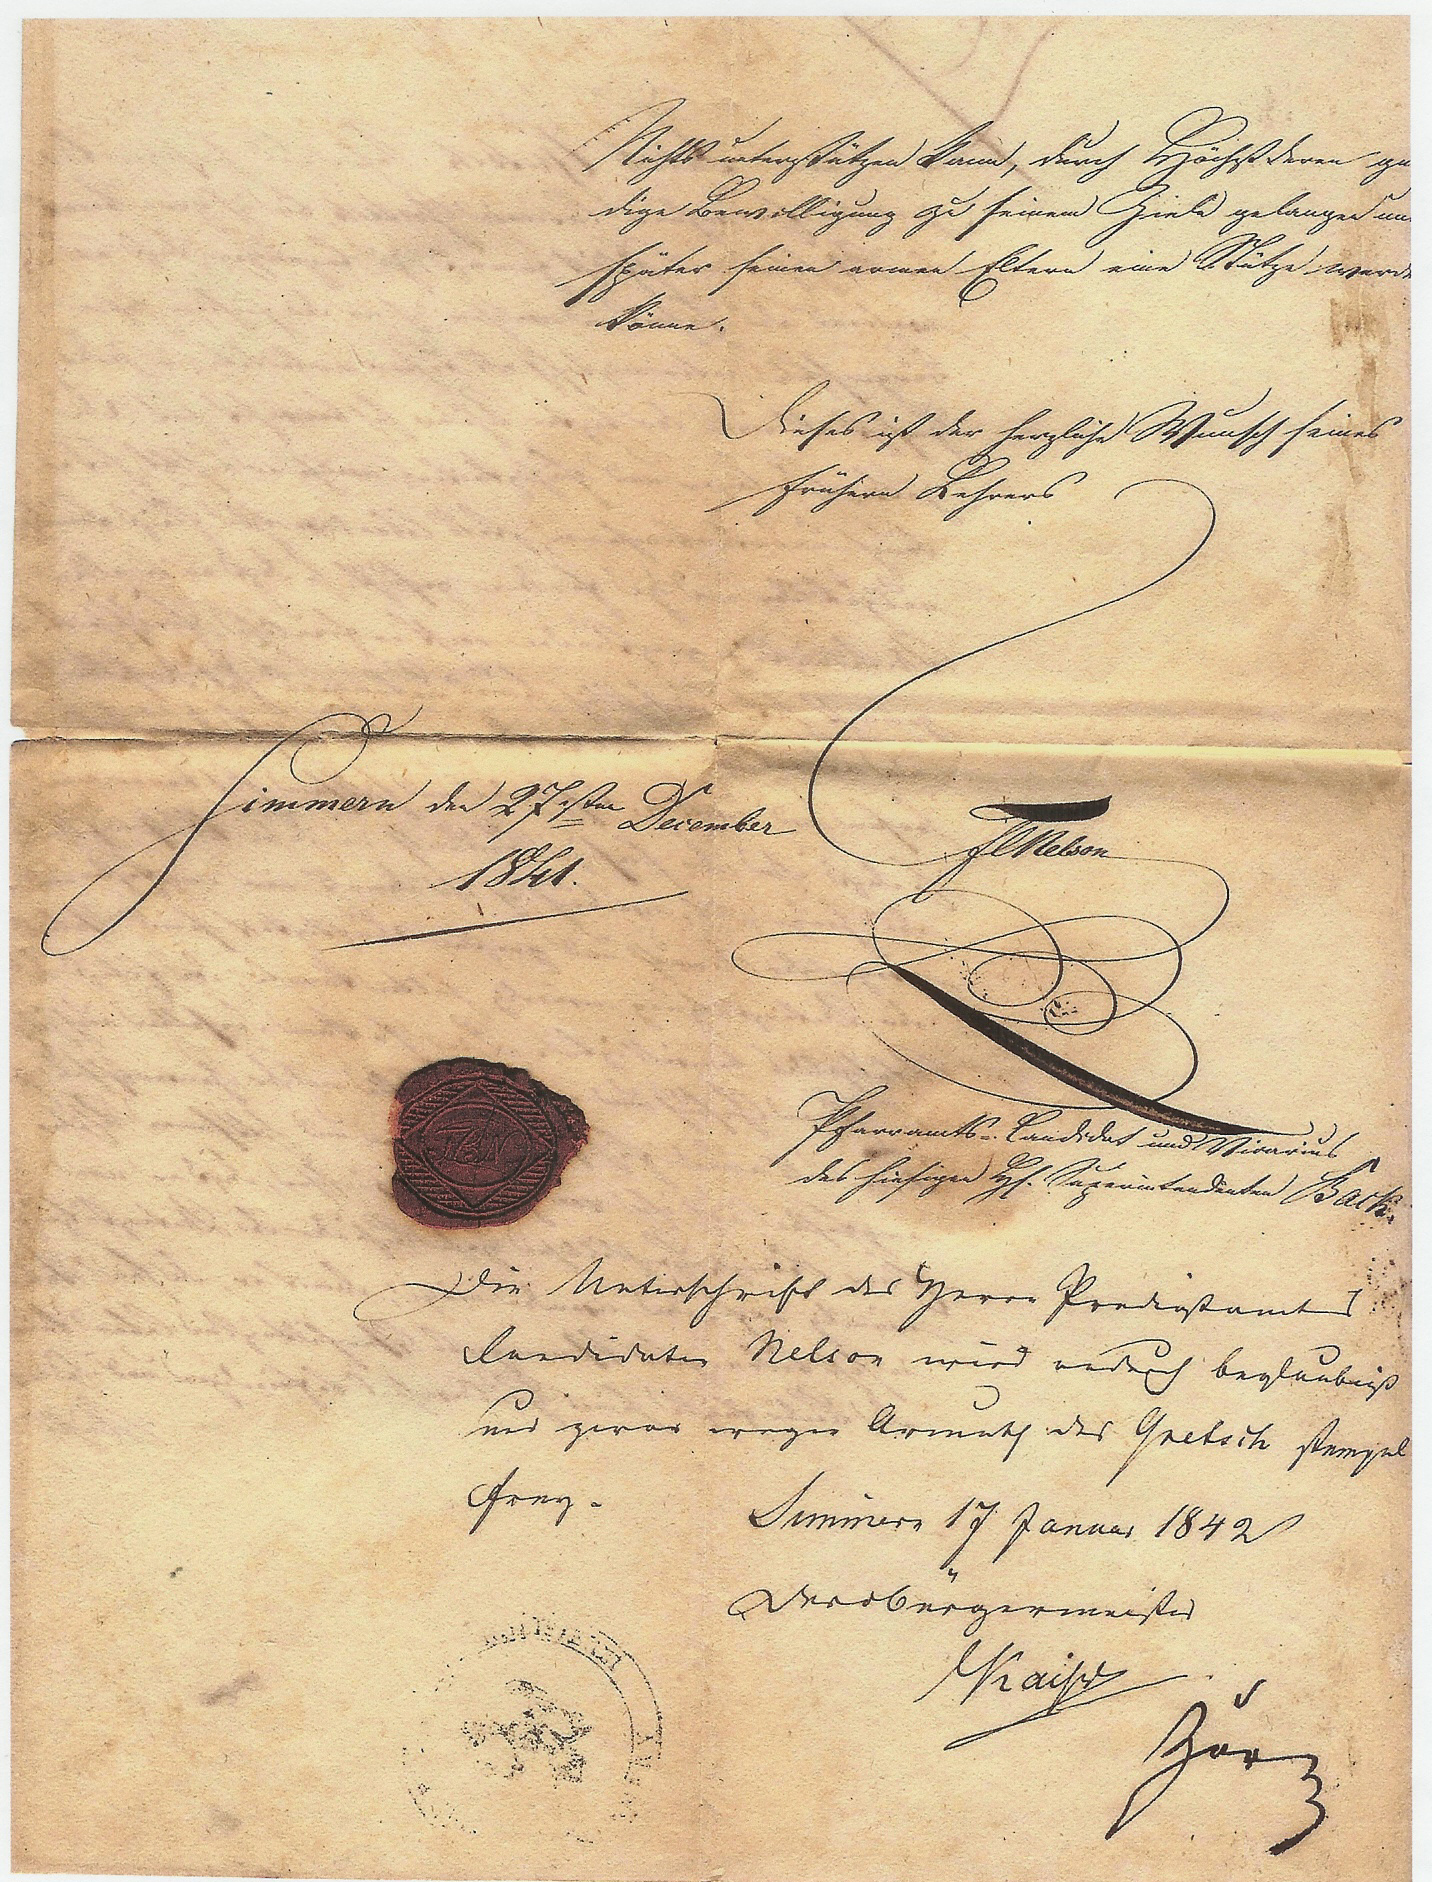 Nichts unterstützen kann, durch Höchstderen gnä
dige Bewilligung zu seinem Ziele gelangen un
später seinen armen Eltern eine Stütze werde
könne.
Dieses ist der herzliche Wunsch seines
frühern Lehrers
Simmern den 27sten December
1841.
Nelson
Pfarramts-Candidat und Vicarius
des hiesigen H. Superintendenten Back.
Die Unterschrift des Herrn Predigtamts
Candidaten Nelson wird beglaubigt
und zwar wegen Armuth des Gretsch stempel
frey.
Simmern 17 Januar 1842
Der Bürgermeister
Kaiser